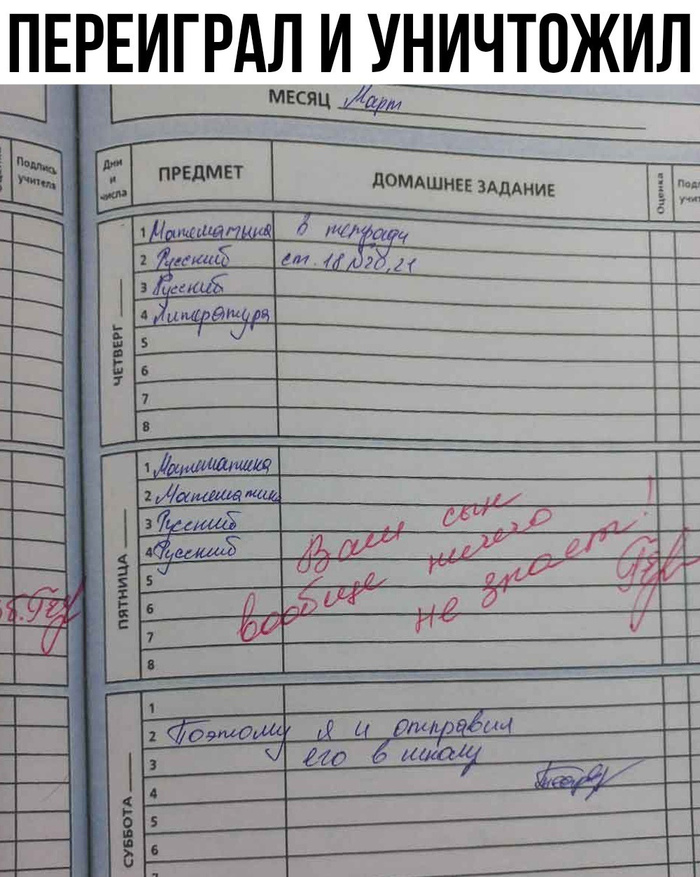 ПЕРЕИГРАЛ И УНИЧТОЖИЛ
МЕСЯЦ Март
Подпись учителя
Дни и числа
ПРЕДМЕТ
ДОМАШНЕЕ ЗАДАНИЕ
Оценка
ЧЕТВЕРГ
1 Математика в тетради
2 Русский ст. 18 №20,21
3 Русский
4 Литература
5
6
7
8
ПЯТНИЦА
1 Математика
2 Математика
3 Русский
4 Русский
5
6
7
8
Ваш сын
вообще ничего
не знает!
СУББОТА
1
2 Поэтому я и отправил
3 его в школу
4
5
6